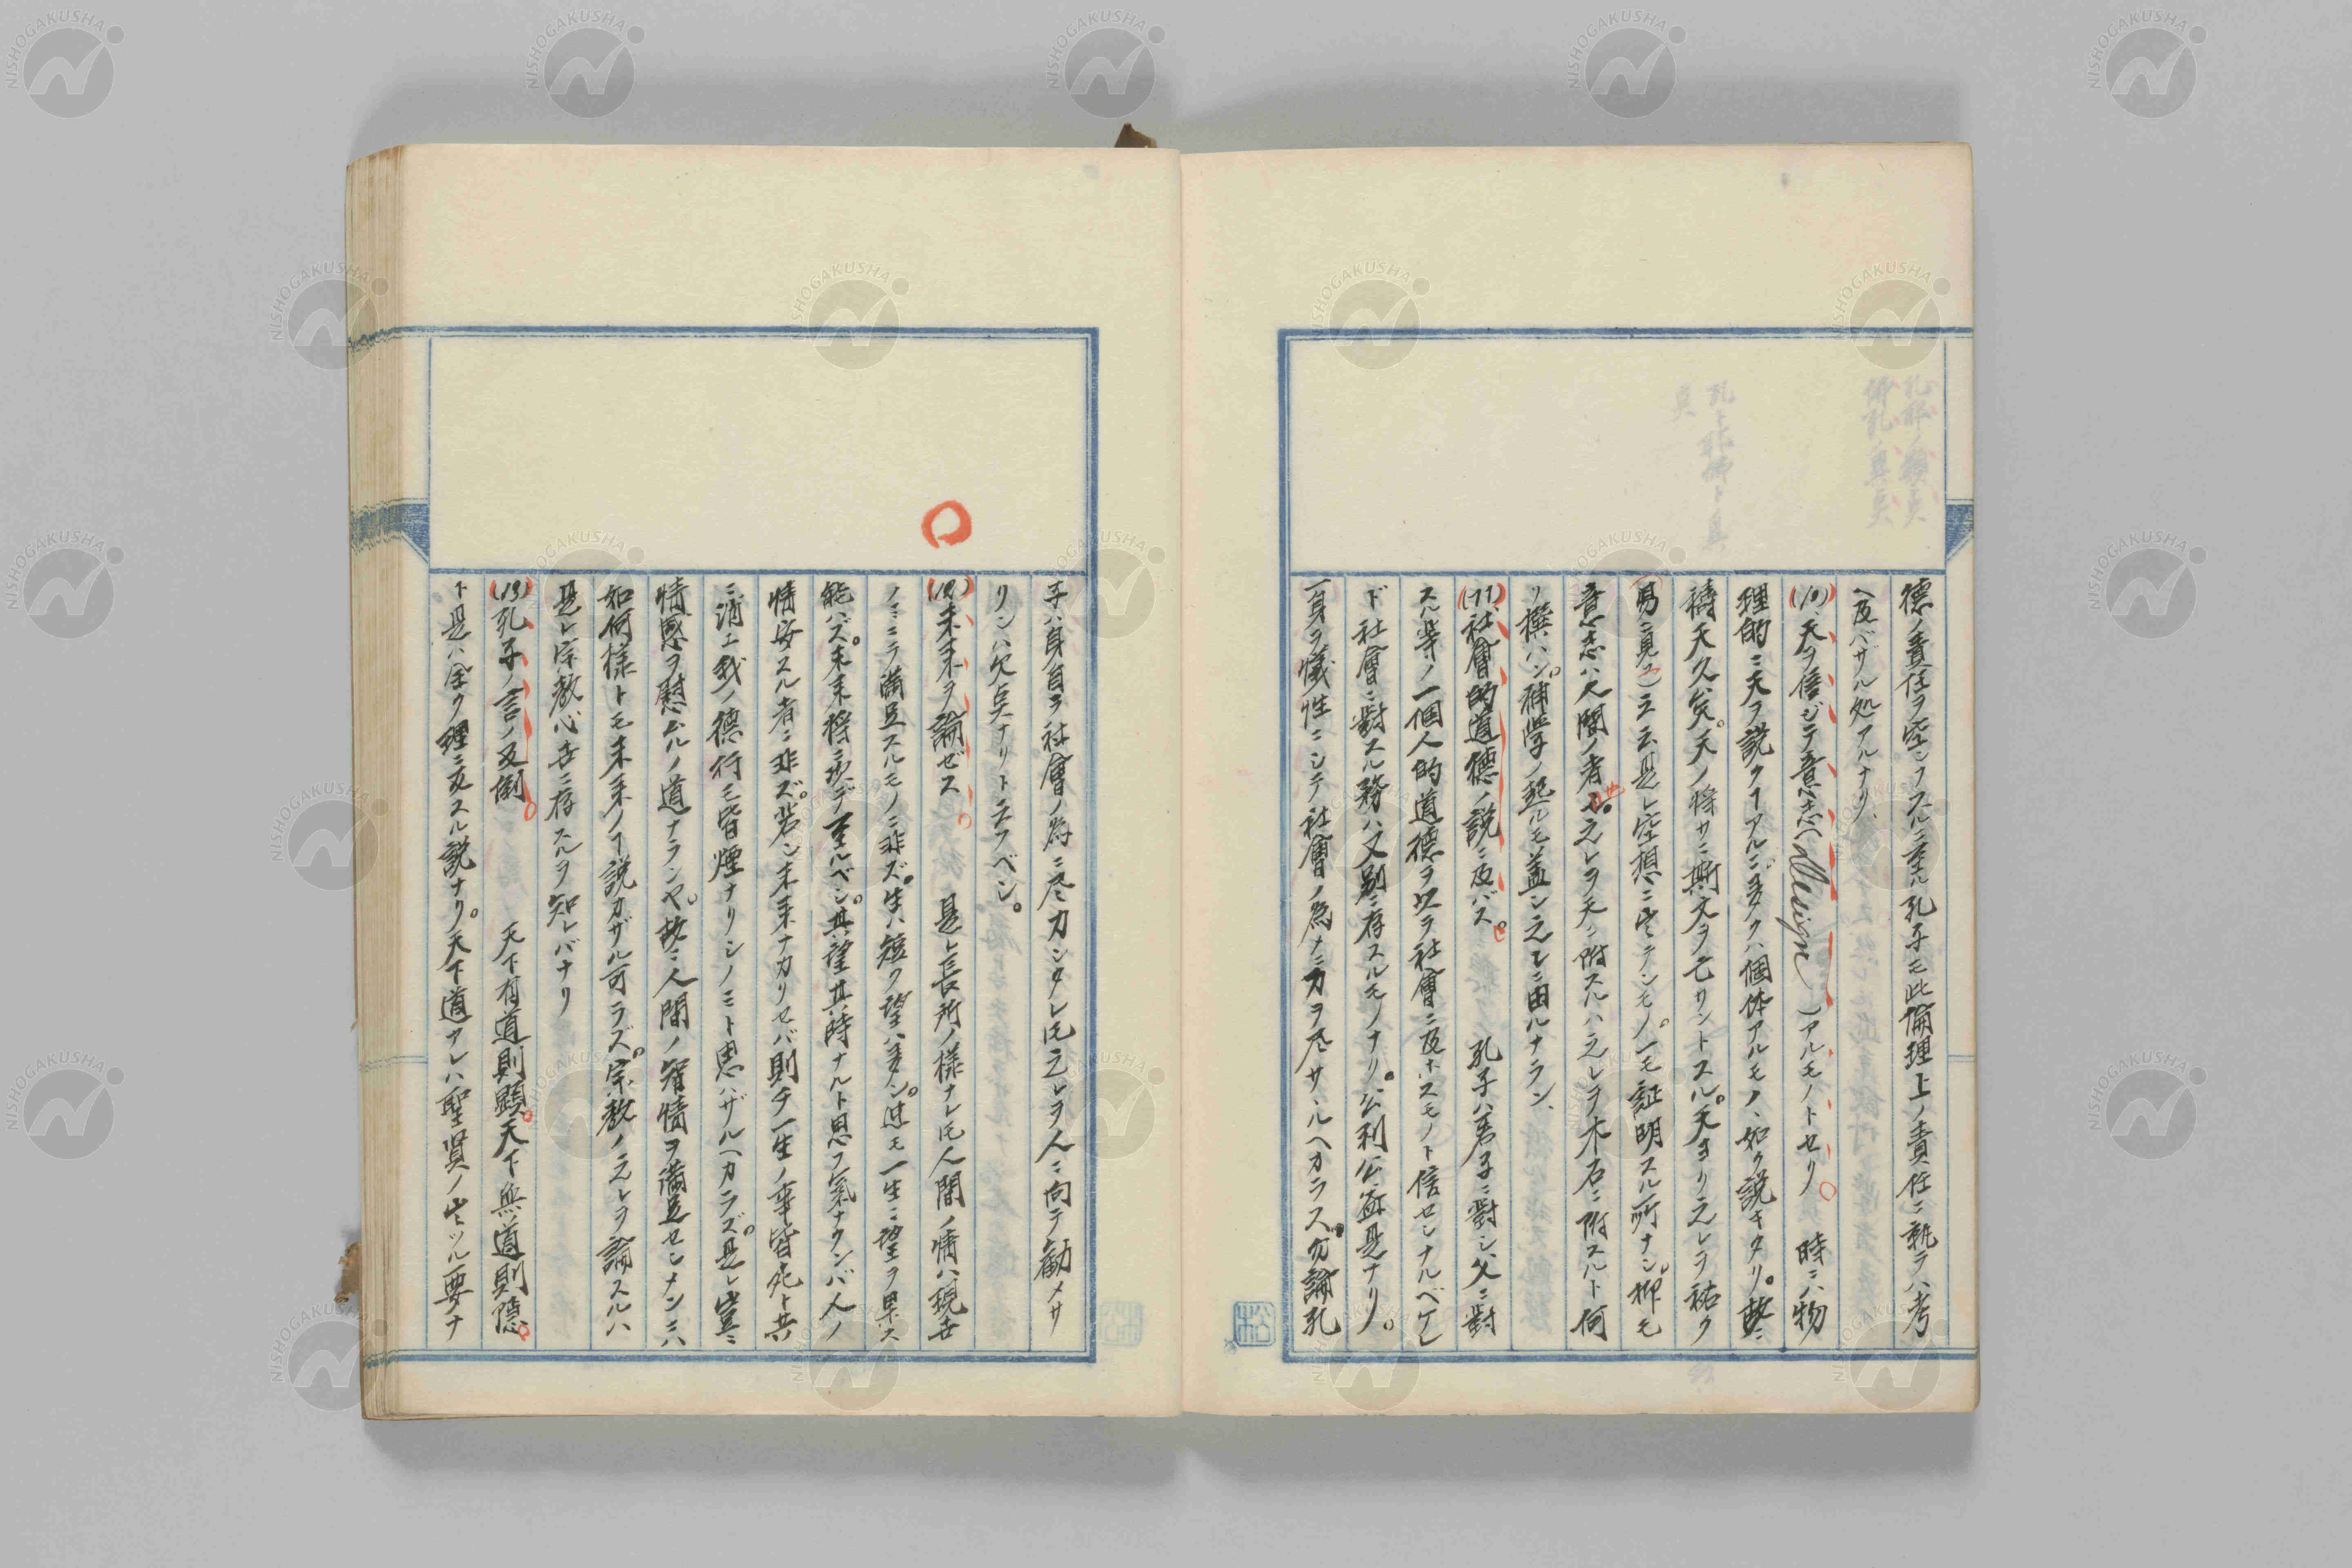 徳ノ責任ヲ空シフスルニ至ル孔子モ此倫理上ノ責任ニ執テハ考
ヘ及バザル処アルナリ、
(10)、天ヲ信ジテ意志(design)アルモノトセリ。時ニハ物
理的ニ天ヲ説クヿアルニ多クハ個体アルモノヽ如ク説キタリ。故ニ
禱天久矣。天ノ将サニ斯文ヲ亡サントスル。天ヨリ之レヲ祐ク
(易ニ見ユ)云云是レ空想ニ出テシモノ。一モ証明スル所ナシ。抑モ
意志ハ人間ノ者也。之レヲ天ニ附スルハ之レヲ木石ニ附スルト何
ソ撰ハン。神学ノ起ルモ蓋シ之レニ由ルナラン、
(11)、社會的道徳ノ説ニ及バス。 孔子ハ君子ニ對シ、父ニ對
スル等ノ一個人的道徳ヲ以ヲ社會ニ及ホスモノト信セシナルベケレ
ド社會ニ對スル務ハ又別ニ存スルモノナリ。公利公益是ナリ。
一身ヲ犠牲ニシテ社會ノ為ナニカヲ尽サヽルヘカラス。勿論孔
子ハ身自ラ社會ノ為ニ尽力シタレ𪜈之レヲ人ニ向テ勧メサ
リシハ欠点ナリト云フベシ。
(12)未来ヲ論ゼス 是レ長所ノ様ナレ𪜈人間ノ情ハ現世
ノミニテ満足スルモノニ非ズ。生ハ短ク望ハ多シ。迚モ一生ニ望ヲ果ス
能ハズ。未来将ニ必デ至ルベシ。其望其時ナルト思フ氣ナクンバ人ノ
情安スル者ニ非ズ。若シ未来ナカリセバ則チ一生ノ事皆死ト共
ニ消エ我ノ徳行モ皆煙ナリシノミト思ハザルヘカラズ。是レ豈ニ
情感ヲ慰ムルノ道ナランヤ。故ニ人間ノ智情ヲ満足センナンニハ
如何様トモ未来ノヿ説カザル可ラズ。宗教ノ之レヲ論スルハ
是レ宗教心世ニ存スルヲ知レバナリ
(13)孔子ノ言ノ反倒。 天下有道則顕。天下無道則隠。
ト是ハ全ク理ニ反スル説ナリ。天下道アレハ聖賢ノ出ツル要ナ